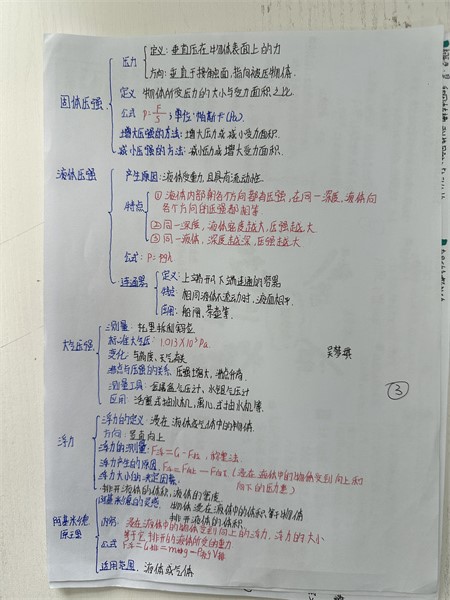 固体压强
压力
定义：垂直压在物体表面上的力
方向：垂直于接触面，指向被压物体.
定义 物体所受压力的大小与受力面积之比.
公式 P=F/S；单位：帕斯卡(Pa).
增大压强的方法：增大压力或减小受力面积.
减小压强的方法：减小压力或增大受力面积.
液体压强
产生原因：液体受重力，且具有流动性.
特点
①液体内部朝各个方向都有压强，在同一深度，液体向
各个方向的压强都相等
②同一深度，液体密度越大，压强越大
③同一液体，深度越深，压强越大
公式：P=ρgh
连通器
定义：上端开口下端连通的容器
特点：相同液体不流动时，液面相平.
应用：船闸，茶壶等.
大气压强
测量：托里拆利实验
标准大气压：1.013×10⁵Pa.
变化：与高度、天气有关
沸点与压强的关系：压强增大，沸点升高.
测量工具：金属盒气压计、水银气压计
应用：活塞式抽水机，离心式抽水机等.
吴梦琪
③
浮力
浮力的定义：浸在液体或气体中的物体.
方向：竖直向上
浮力的测量：F浮=G-F拉，称重法.
浮力产生的原因：F浮=F向上-F向下（浸在液体中的物体受到向上和
向下的压力差）
浮力大小的决定因素：
排开液体的体积，液体的密度
阿基米德原理
阿基米德的灵感：物体浸在液体中的体积等于物体
排开液体的体积.
内容：浸在液体中的物体受到向上的浮力，浮力的大小
等于它排开的液体所受的重力
公式：F浮=G排=m排g=ρ液gV排
适用范围：液体或气体